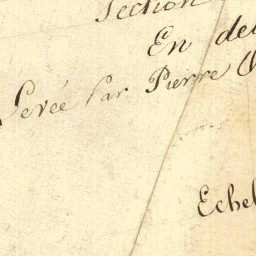 Section
En de
Levée Par Pierre
Echel